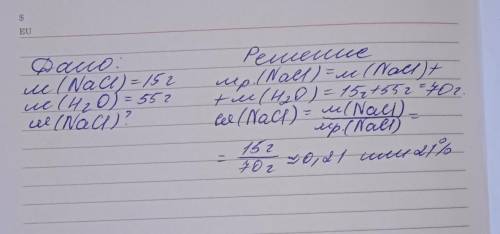 $
EU
Дано:
м(NaCl)=15г
м(H₂O)=55г
ω(NaCl)?
Решение
мр.(NaCl)=м(NaCl)+
+м(H₂O)=15г+55г=70г.
ω(NaCl)=м(NaCl)/мр(NaCl)=
=15г/70г≈0,21 или 21%